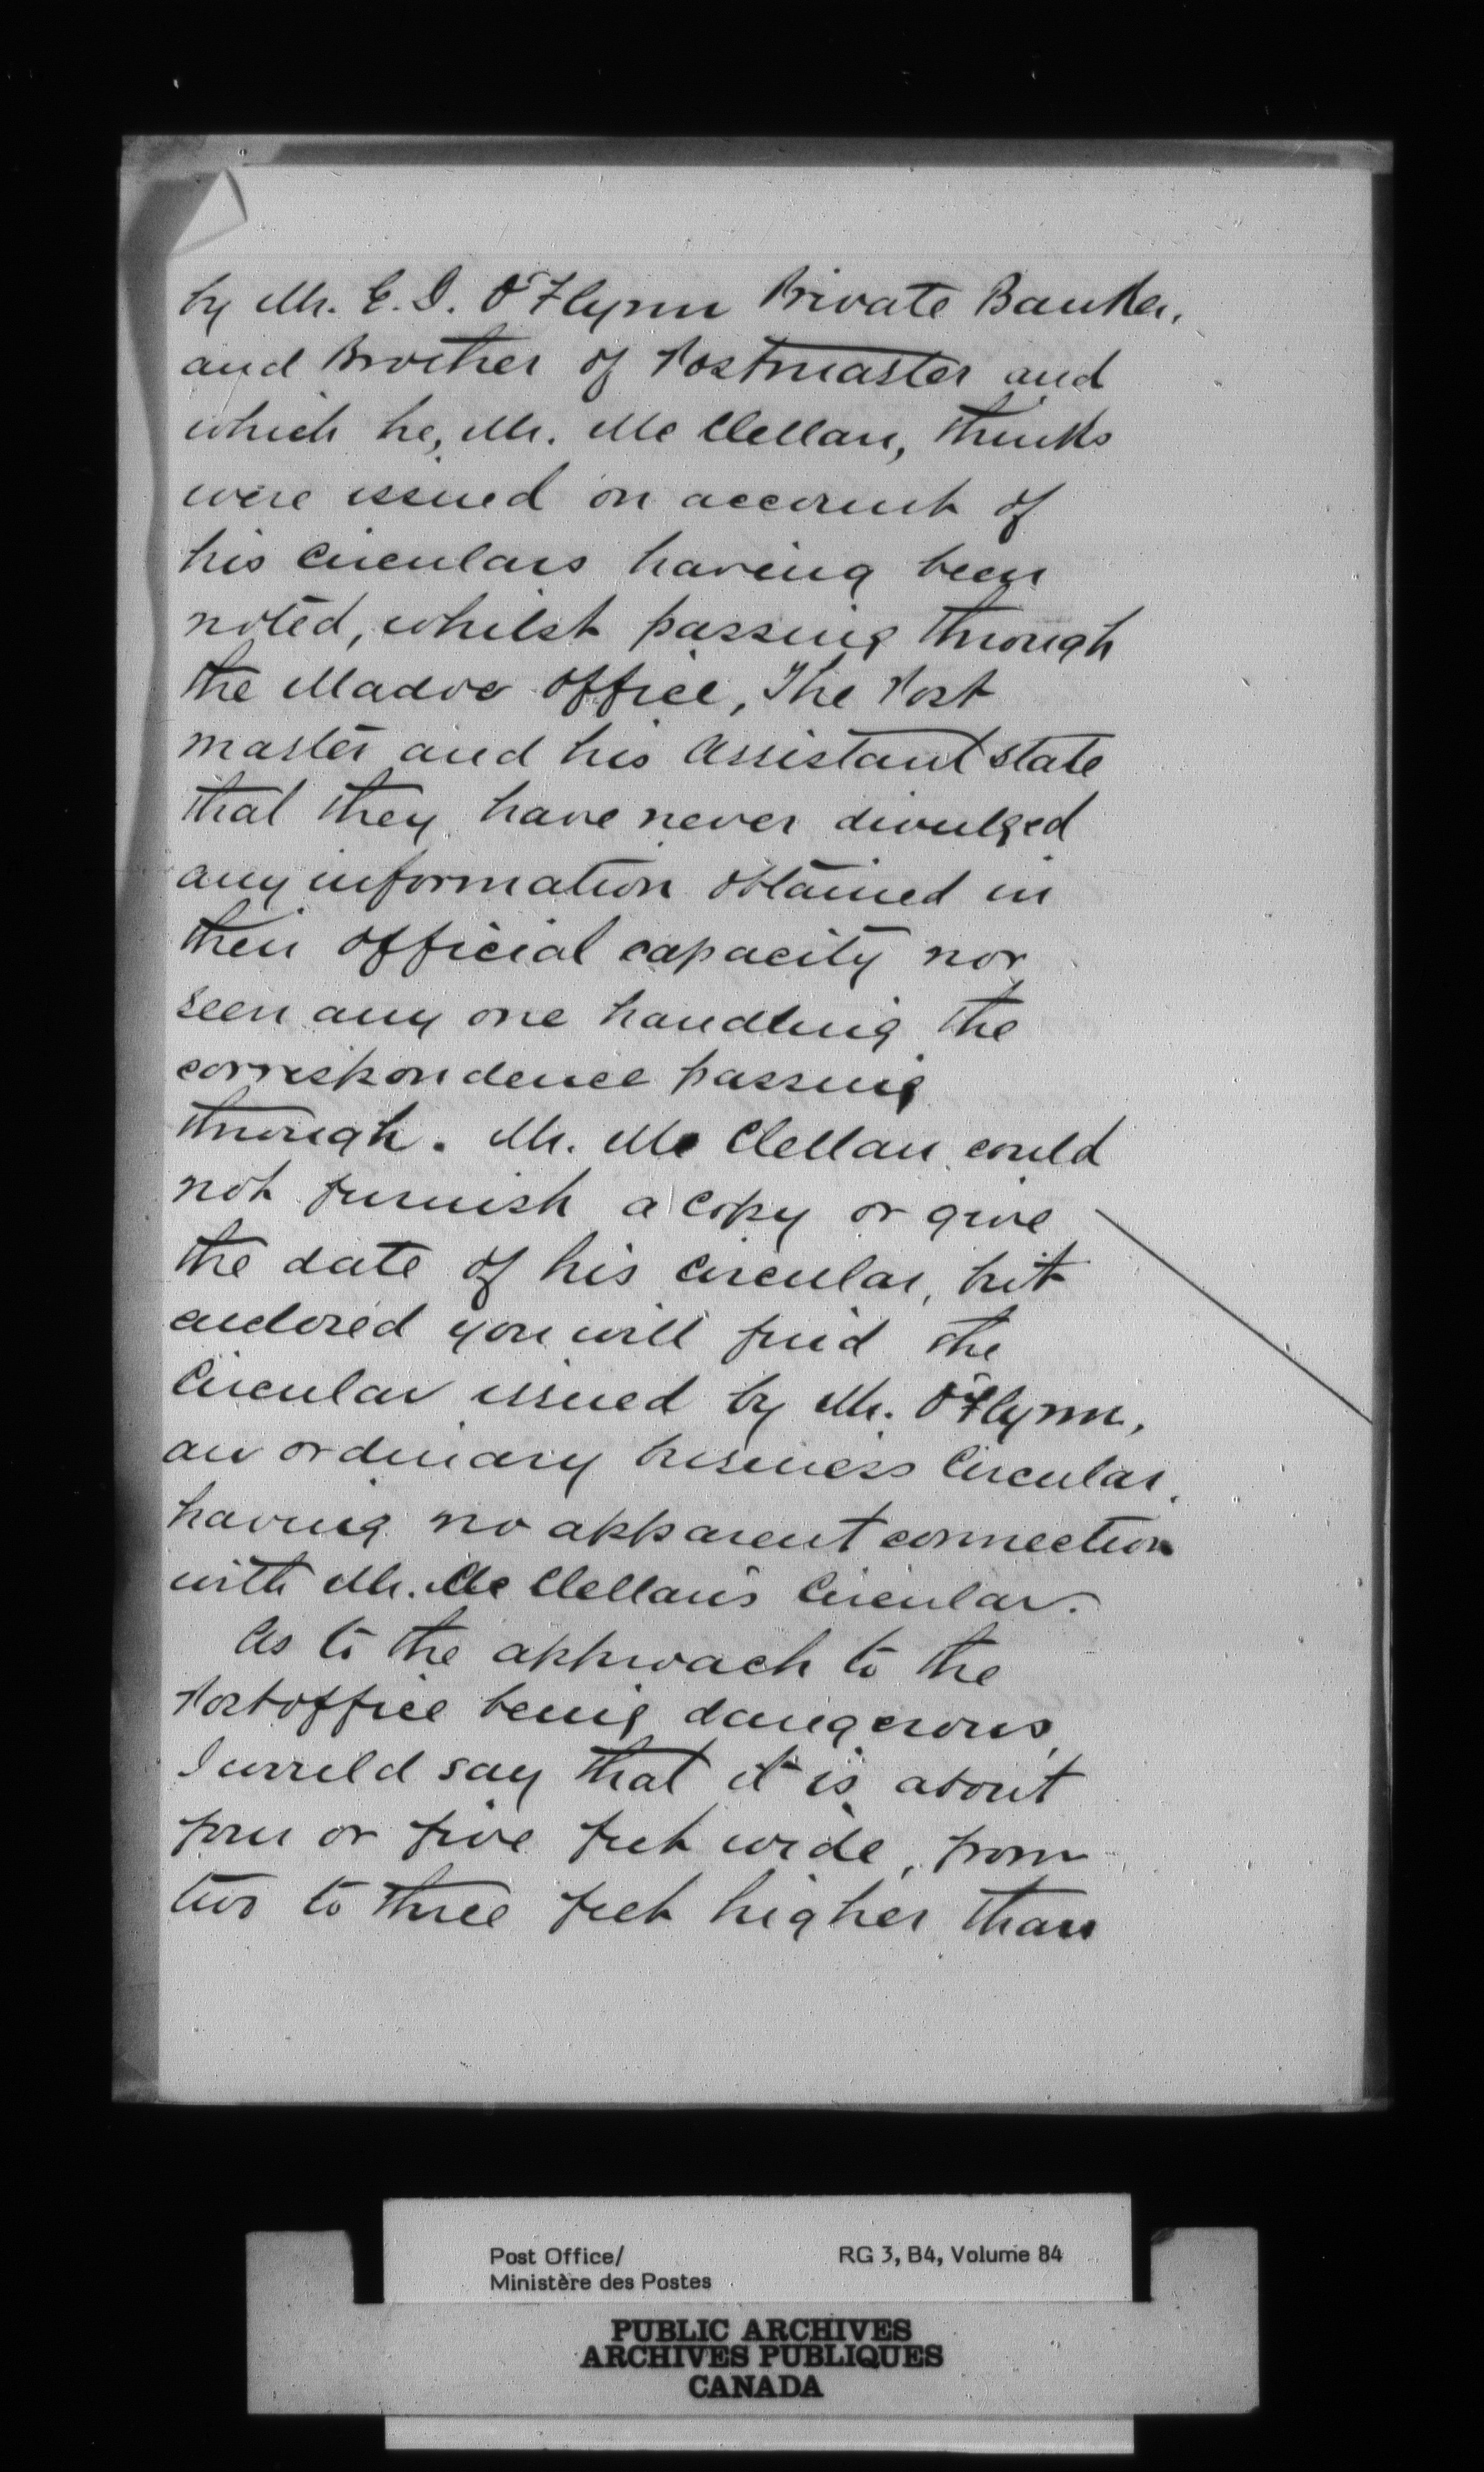 by Mr. E. D. O'Flynn Private Banker,
and Brother of Postmaster and
which he, Mr. McClellan, thinks
were issued on account of
his circulars having been
noted, whilst passing through
the Madoc office, The Post
master and his Assistant state
that they have never divulged
any information obtained in
their official capacity nor
seen any one handling the
correspondence passing
through. Mr. McClellan could
not furnish a copy or give
the date of his circular, but
enclosed you will find the
Circular issued by Mr. O'Flynn,
an ordinary business Circular,
having no apparent connection
with Mr. McClellan's Circular.
As to the approach to the
Postoffice being dangerous,
I would say that it is about
four or five feet wide, from
two to three feet higher than
Post Office/
Ministère des Postes
RG 3, B4, Volume 84
PUBLIC ARCHIVES
ARCHIVES PUBLIQUES
CANADA